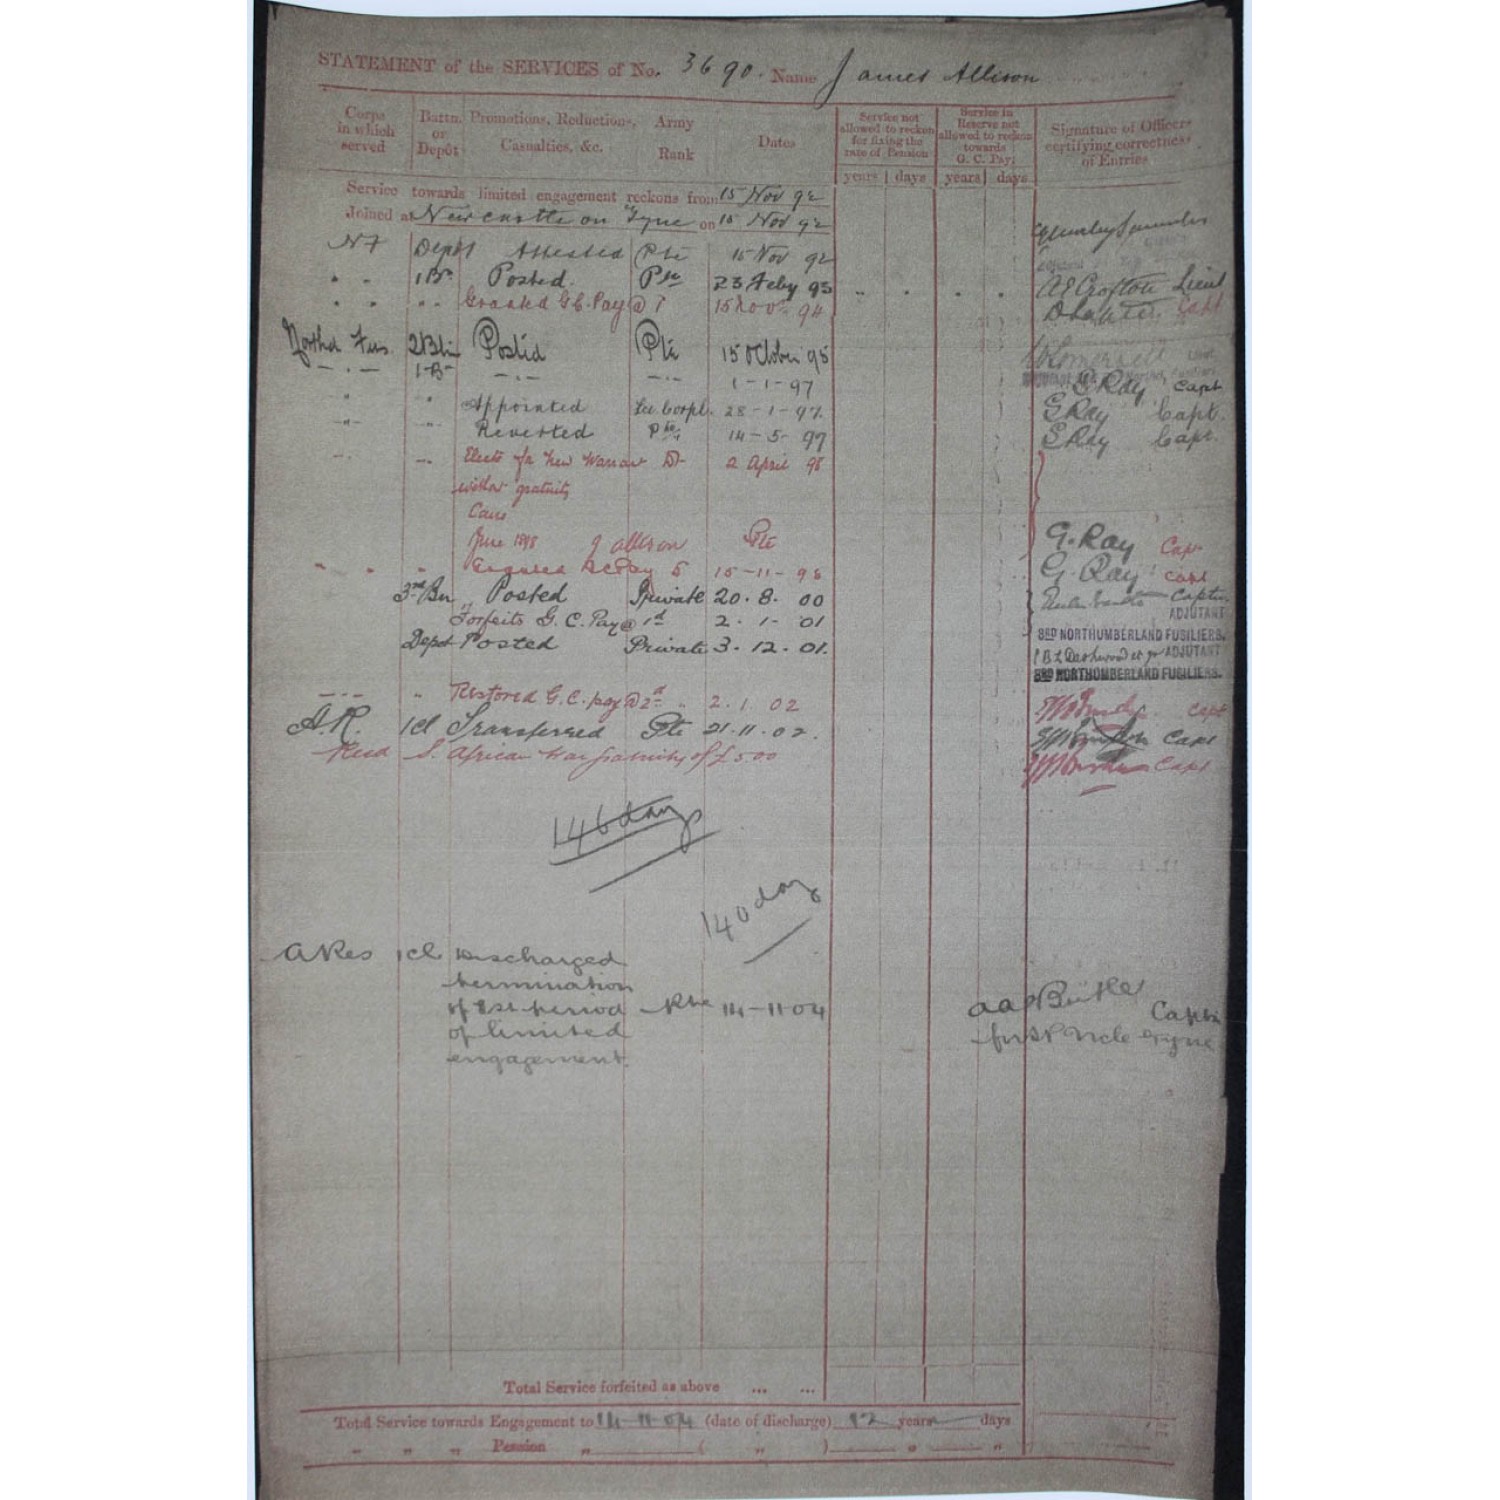 STATEMENT of the SERVICES of No. 3690. Name James Allison
Corps in which served
Battn. or Depôt
Promotions, Reductions, Casualties, &c.
Army Rank
Dates
Service not allowed to reckon for fixing the rate of Pension
Service in Reserve not allowed to reckon towards G. C. Pay.
Signature of Officers certifying correctness of Entries
years days years days
Service towards limited engagement reckons from 15 Nov 92
Joined at Newcastle on Tyne on 15 Nov 92
NF Depot Attested Pte 15 Nov 92
" " 1 Bn Posted. Pte 23 Feby 93 Lieut
" " " " Granted G C. Pay @ 1 15 Nov 94 Capt
Northd Fus. 2 Bn Posted Pte 15 October 95
— " — 1 B — " — — " — 1-1-97 G Ray Capt
" " Appointed Lce Corpl. 28-1-97. G Ray Capt.
" " Reverted Pte. 14-5-97 G Ray Capt.
" " 2 April 98
gratuity
Cairo
June 1898 J Allison Pte G. Ray Capt
" " " 15-11-98 G. Ray Capt
3rd Bn Posted Private 20. 8. 00 Captn
ADJUTANT
Forfeits G. C. Pay @ 1d 2. 1. 01
3RD NORTHUMBERLAND FUSILIERS.
Depot Posted Private 3. 12. 01.
ADJUTANT
3RD NORTHUMBERLAND FUSILIERS.
— " — " Restored G. C. pay @ 2d " 2. 1. 02 Capt
A.R. 1cl Transferred Pte 21.11.02. Capt
S. African War gratuity of £5.00 Capt
146 days
140 days
A Res 1cl Discharged
termination
of 1st period Pte 14-11-04 Butler Captn
of limited
engagement.
Total Service forfeited as above ... ...
Total Service towards Engagement to 14-11-04 (date of discharge) 12 years — days
" " " Pension " ( " ) " "